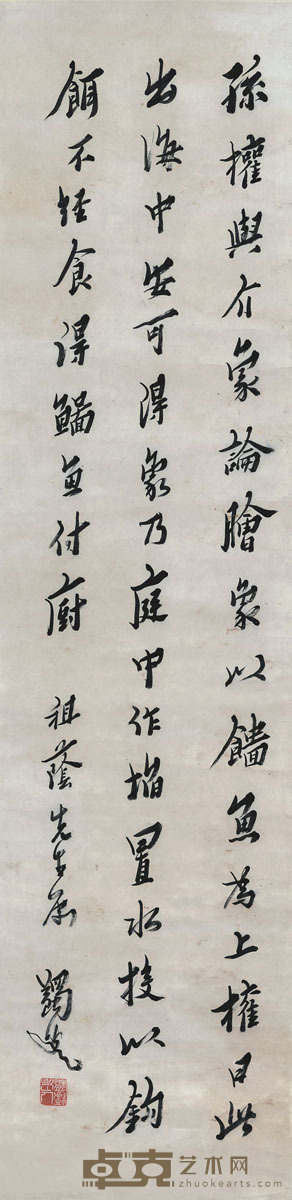 孫權與介象論膾象以鱕魚為上權曰此
出海中安可得象乃庭中作坎置水投以鉤
餌不經食得鱕魚付廚
祖蔭先生屬 蠲叟
卓克艺术网
www.zhuokearts.com